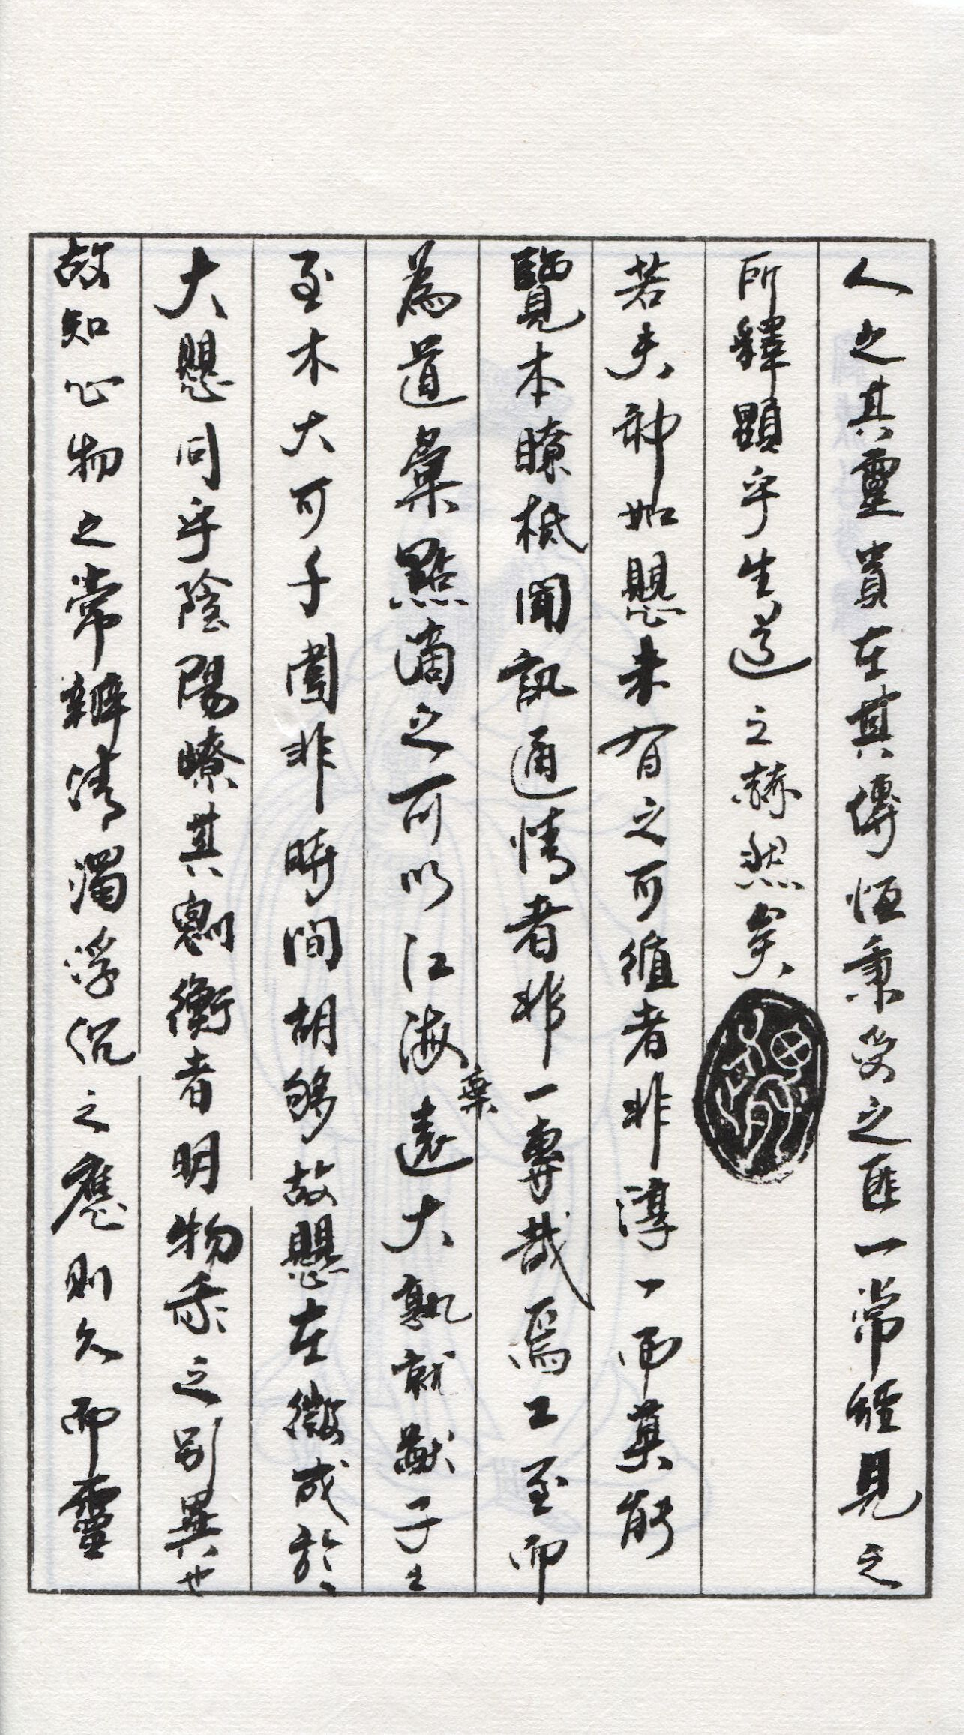 人之其靈貴在其傳恒秉受之匪一常經見之
所釋顯乎生道之赫然矣
若夫神如懸未有之可循者非淳一而莫能
覽本瞭柢聞訊通情者非一專哉焉工至而
為道彙點滴之可以江海棄遠大孰就猷子土
至木大可千圍非時間胡夠故懸在微成於
大懸同乎陰陽瞭其劓衡者明物豸之別異也
故知心物之常辨清濁浮沉之應則久而靈